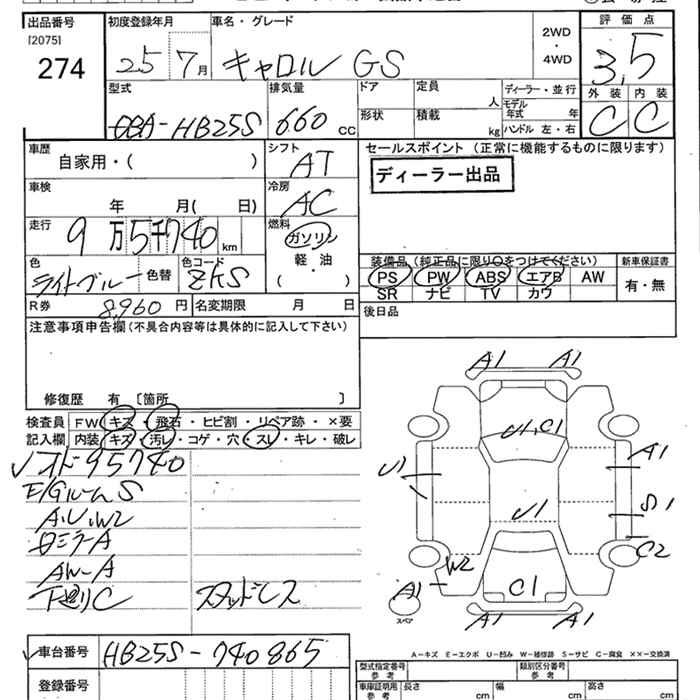 出品番号 初度登録年月 車名・グレード 2WD ・ 4WD 評価点
[2075]
274 25 7月 キャロル GS 3.5
型式 排気量 ドア 定員 人 ディーラー・並行 外装 内装
DBA-HB25S 660 cc 形状 積載 kg モデル年式 年 C C
ハンドル 左・右
車歴 シフト セールスポイント (正常に機能するものに限ります)
自家用・( ) AT ディーラー出品
車検 冷房
年 月( 日) AC
走行 燃料
9万5千740km ガソリン
軽油
( )
装備品(純正品に限り○をつけてください) 新車保証書
色 色替 色コード PS PW ABS エアB AW 有・無
ライトブルー ZKS SR ナビ TV カワ
R券 8,960円 名変期限 月 日 後日品
注意事項申告欄(不具合内容等は具体的に記入して下さい)
修復歴 有 [箇所 ]
検査員 FW キズ・飛石・ヒビ割・リペア跡・×要
記入欄 内装 キズ・汚レ・コゲ・穴・スレ・キレ・破レ
A1 A1
U1, C1
U1 A1
S1
U1
C2
W2
A1 C1
スペア
A1 A1
ソオド 95740
E/GルームS
A.U.W2
AW-A
下廻りC スタッドレス
A-キズ E-エクボ U-凹み W-補修跡 S-サビ C-腐食 ××-交換済
車台番号 HB25S-740865
登録番号
型式指定番号 参考 類別区分番号 参考
車庫証明用 参考 長さ cm 幅 cm 高さ cm